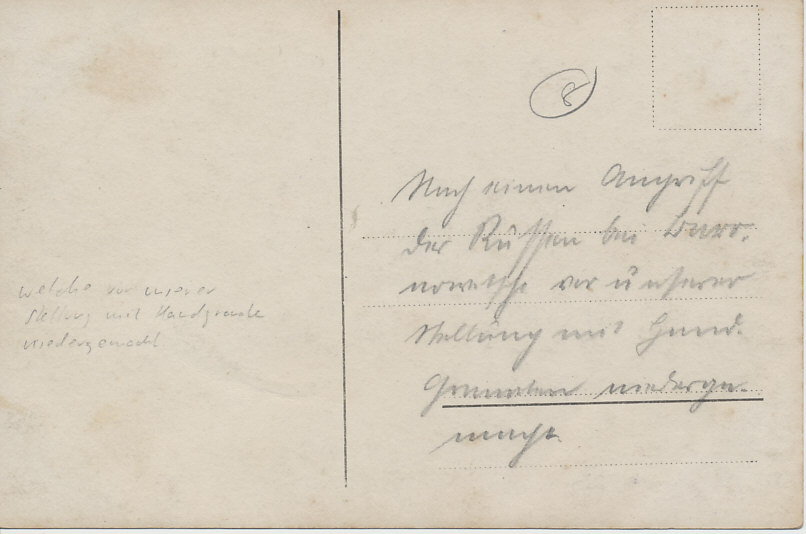 8
Nach einem Angriff
der Russen bei
vor unserer
Stellung mit Hand-
Granaten niederge-
macht.
welche vor unserer
Stellung mit Handgranate
niedergemacht